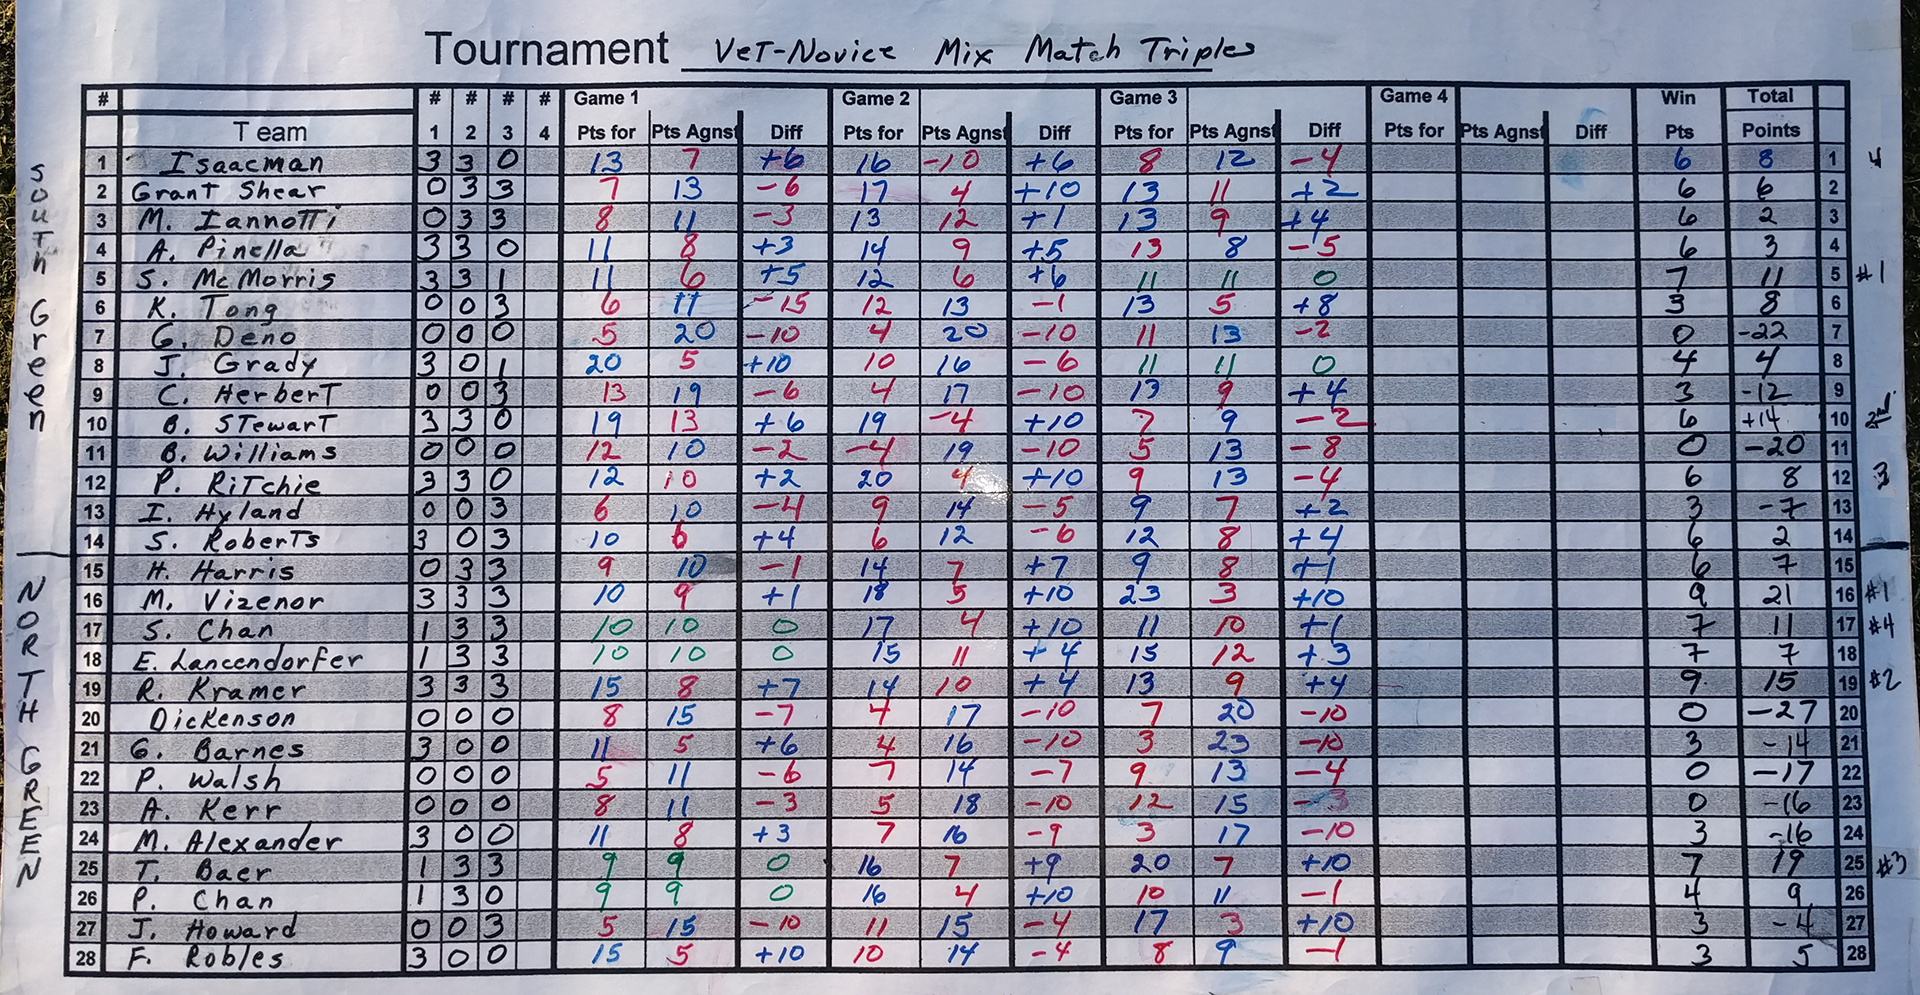 Tournament VeT-Novice Mix Match Triples
# # # # # Game 1 Game 2 Game 3 Game 4 Win Total
Team 1 2 3 4 Pts for Pts Agnst Diff Pts for Pts Agnst Diff Pts for Pts Agnst Diff Pts for Pts Agnst Diff Pts Points
South Green
1 Isaacman 3 3 0 13 7 +6 16 -10 +6 8 12 -4 6 8 1 4
2 Grant Shear 0 3 3 7 13 -6 17 4 +10 13 11 +2 6 6 2
3 M. Iannotti 0 3 3 8 11 -3 13 12 +1 13 9 +4 6 2 3
4 A. Pinella 3 3 0 11 8 +3 14 9 +5 13 8 -5 6 3 4
5 S. McMorris 3 3 1 11 6 +5 12 6 +6 11 11 0 7 11 5 #1
6 K. Tong 0 0 3 6 11 -15 12 13 -1 13 5 +8 3 8 6
7 G. Deno 0 0 0 5 20 -10 4 20 -10 11 13 -2 0 -22 7
8 J. Grady 3 0 1 20 5 +10 10 16 -6 11 11 0 4 4 8
9 C. HerberT 0 0 3 13 19 -6 4 17 -10 13 9 +4 3 -12 9
10 B. STewarT 3 3 0 19 13 +6 19 -4 +10 7 9 -2 6 +14 10 2nd
11 B. Williams 0 0 0 12 10 -2 -4 19 -10 5 13 -8 0 -20 11
12 P. RiTchie 3 3 0 12 10 +2 20 4 +10 9 13 -4 6 8 12 3
13 I. Hyland 0 0 3 6 10 -4 9 14 -5 9 7 +2 3 -7 13
14 S. RoberTs 3 0 3 10 6 +4 6 12 -6 12 8 +4 6 2 14
NORTH GREEN
15 H. Harris 0 3 3 9 10 -1 14 7 +7 9 8 +1 6 7 15
16 M. Vizenor 3 3 3 10 9 +1 18 5 +10 23 3 +10 9 21 16 #1
17 S. Chan 1 3 3 10 10 0 17 4 +10 11 10 +1 7 11 17 #4
18 E. Lancendorfer 1 3 3 10 10 0 15 11 +4 15 12 +3 7 7 18
19 R. Kramer 3 3 3 15 8 +7 14 10 +4 13 9 +4 9 15 19 #2
20 Dickenson 0 0 0 8 15 -7 4 17 -10 7 20 -10 0 -27 20
21 G. Barnes 3 0 0 11 5 +6 4 16 -10 3 23 -10 3 -14 21
22 P. Walsh 0 0 0 5 11 -6 7 14 -7 9 13 -4 0 -17 22
23 A. Kerr 0 0 0 8 11 -3 5 18 -10 12 15 -3 0 -16 23
24 M. Alexander 3 0 0 11 8 +3 7 16 -9 3 17 -10 3 -16 24
25 T. Baer 1 3 3 9 9 0 16 7 +9 20 7 +10 7 19 25 #3
26 P. Chan 1 3 0 9 9 0 16 4 +10 10 11 -1 4 9 26
27 J. Howard 0 0 3 5 15 -10 11 15 -4 17 3 +10 3 -4 27
28 F. Robles 3 0 0 15 5 +10 10 14 -4 8 9 -1 3 5 28